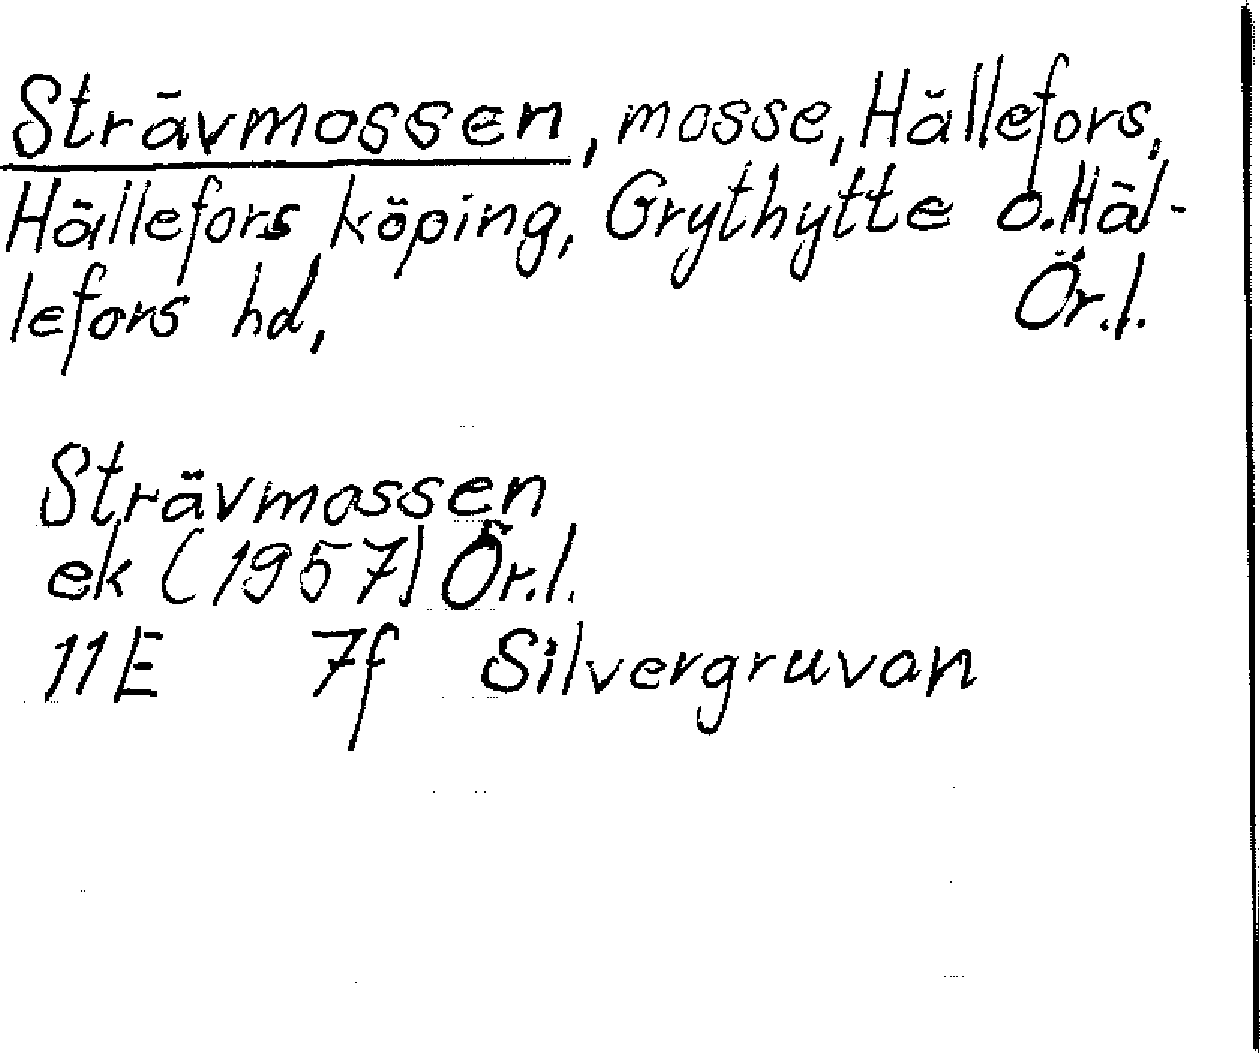 Strävmossen, mosse, Hällefors,
Hällefors köping, Grythytte o. Häl-
lefors hd, Ör.l.
Strävmossen
ek (1957) Ör.l.
11E 7f Silvergruvan